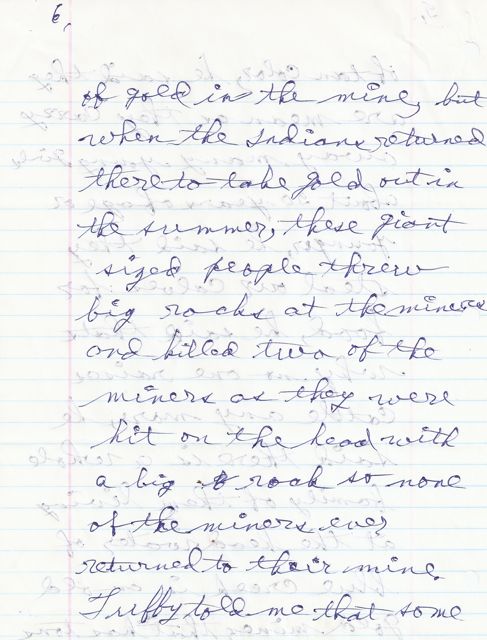 6,
of gold in the mine, but
when the Indians returned
there to take gold out in
the summer, these giant
sized people threw
big rocks at the miners
and killed two of the
miners as they were
hit on the head with
a big rock so none
of the miners ever
returned to their mine.
Tuffy told me that some